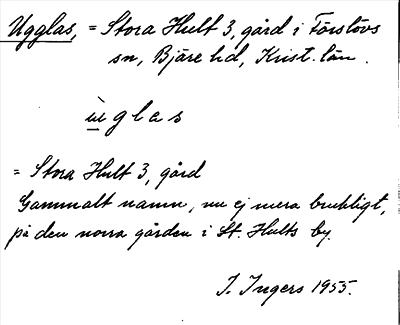 Ugglas, = Stora Hult 3, gård i Förslövs
sn, Bjäre hd, Krist. län.
ùglas
= Stora Hult 3, gård
Gammalt namn, nu ej mera brukligt,
på den norra gården i St. Hults by.
I. Ingers 1955.